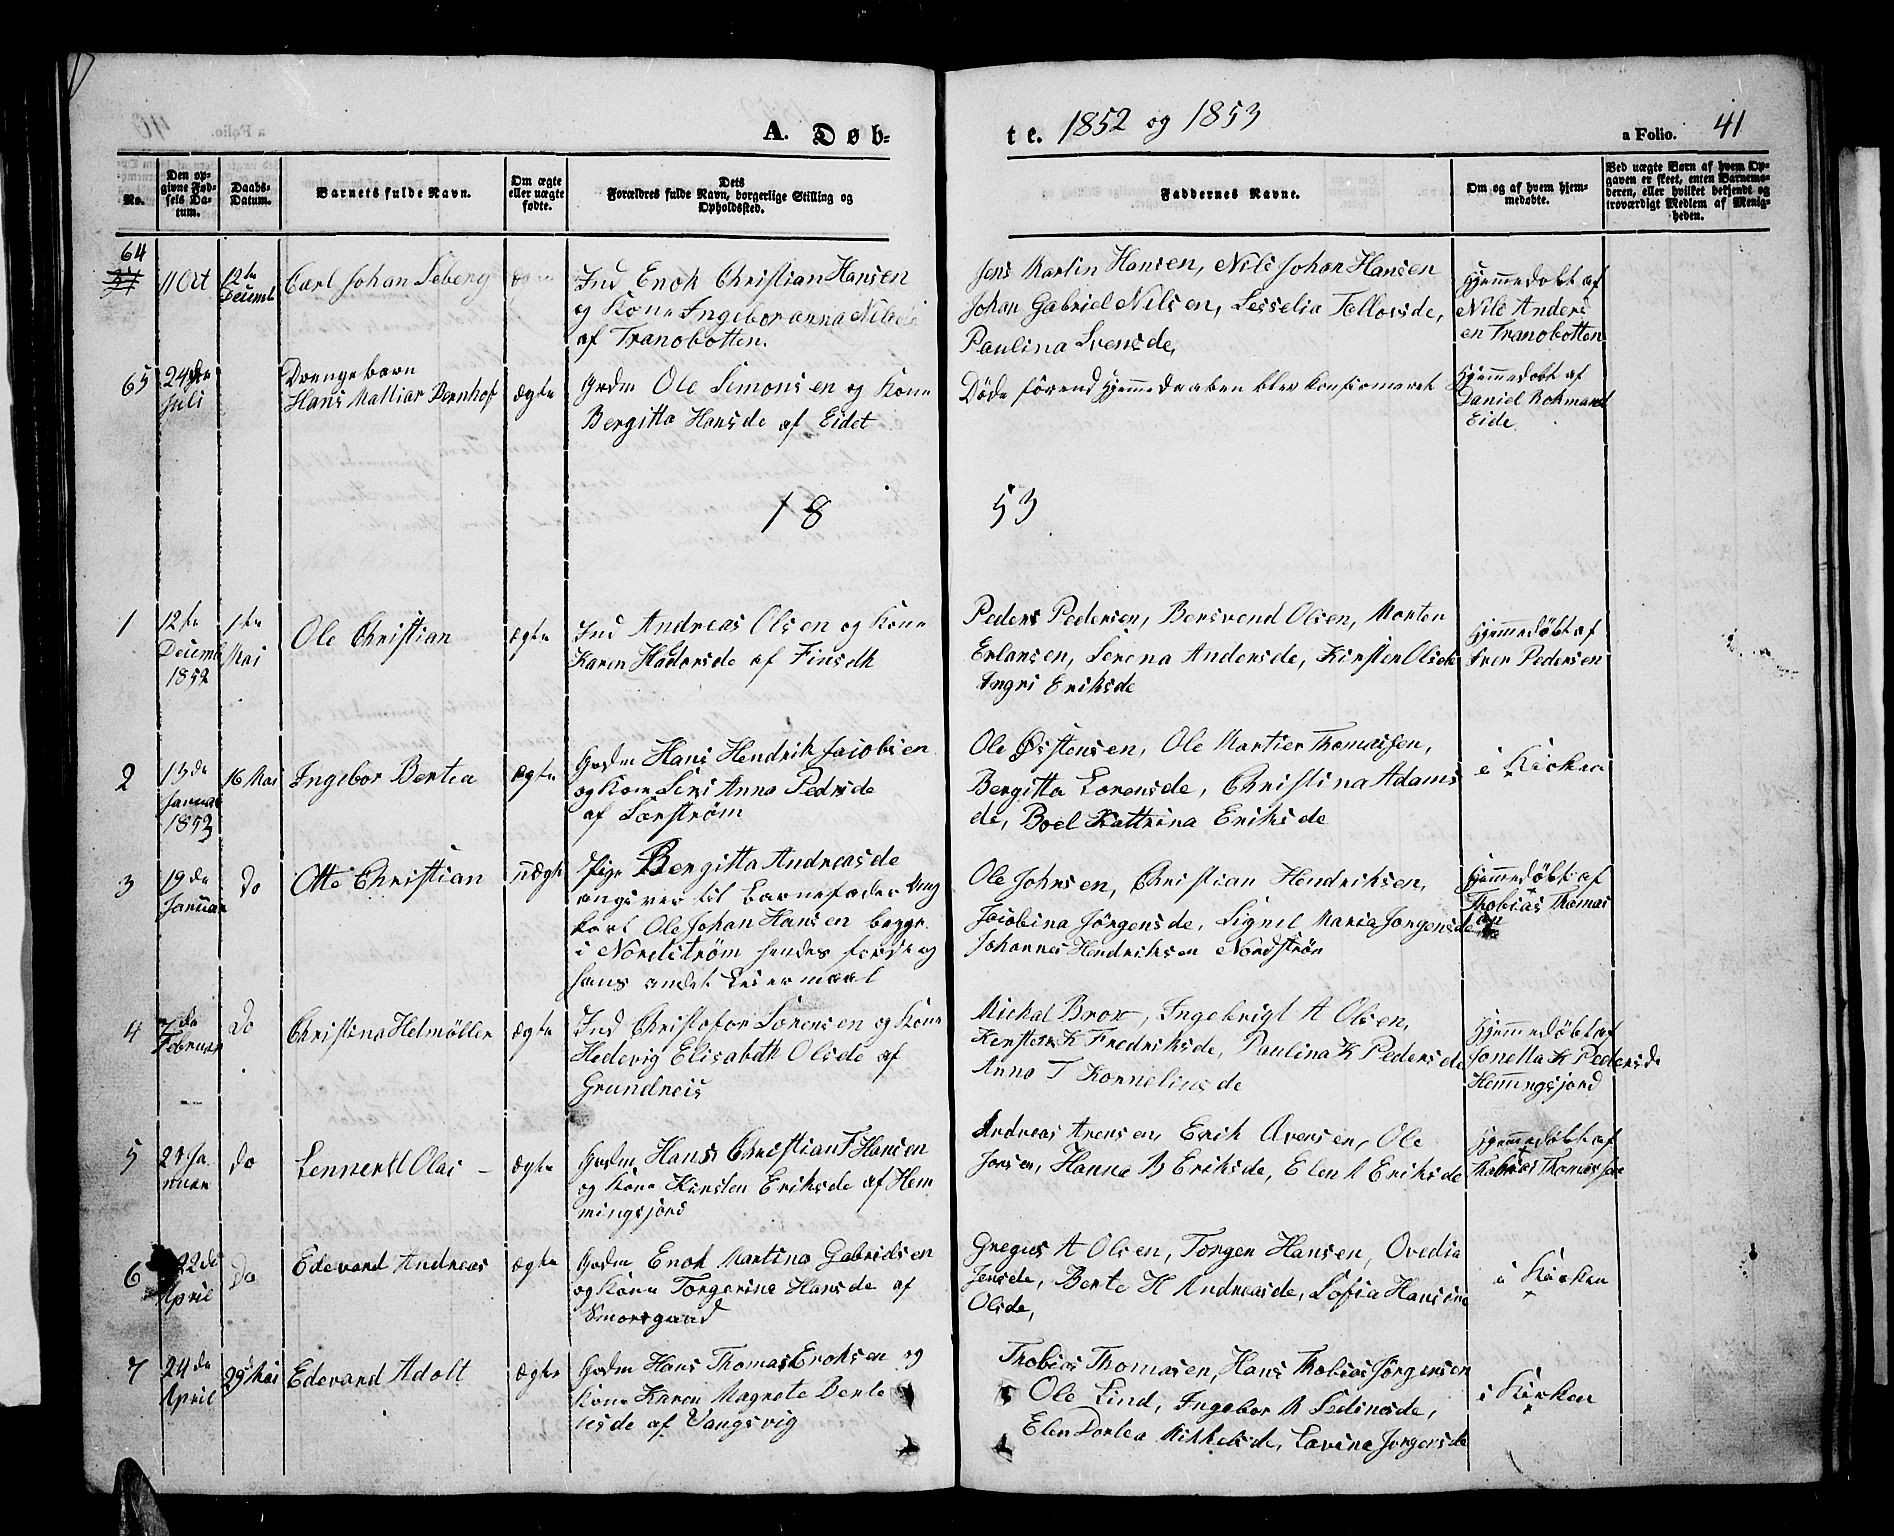 A. Døb-
te. 1852 og 1853
a Folio. 41
No.
Den op-
givne Fød-
sels Da-
tum.
Daabs-
Datum.
Barnets fulde Navn.
Om ægte
eller uægte
fødte.
Dets
Forældres fulde Navn, borgerlige Stilling og
Opholdssted.
Faddernes Navne.
Om og af hvem hjem-
medøbte.
Ved uægte Børn af hvem Op-
gaven er skeet, enten Barnemo-
deren, eller hvilket bekjendt og
troværdigt Medlem af Menig-
heden.
64
11 Oct
12te
Decemb
Carl Johan Seberg
Ind Enok Christian Hansen
og Kone Ingebor anna
af Tranobotten.
Jens Martin Hansen, Nils Johan Hansen
Johan Gabriel Nilsen, Sesselia Tollosde,
Paulina Svensde,
Hjemmedøbt af
Nils Anders
en Tranobotten
65
24de
Juli
Drengebarn
Hans Mattiar Bernhof
ægte
Grdm Ole Simonsen og Kone
Bergitta Hansde af Eidet
Døde førend Hjemmedaaben blev konfirmeret
Hjemmedøbt af
Daniel
Eide
18 53
1
12te
Decemb
1852
1te
Mai
Ole Christian
ægte
Ind Andreas Olsen og Kone
Karen Hadersde af Finsdh
Peders Pedersen, Bersvend Olsen, Morten
Erlansen, Serena Andersde, Kirsten Olsde
Ingri Eriksde
Hjemmedøbt af
Iver Pedersen
2
13de
Januar
1853
16 Mai
Ingebor Bertea
ægte
Grdm Hans Hendrik Jacobsen
og Kone Siri Anna Pedrsde
af Sørstrøm
Ole Østensen, Ole Martier Thomassen,
Bergitta Lorensde, Christina Adams
de, Boel Kattrina Eriksde
i Kirken
3
19de
Januar
Do
Otte Christian
uægte
Pige Bergitta Andreasde
angiver til Barnefader Ung
karl Ole Johan Hansen begge
i Nordstrøm hendes første og
hans andet Leiermaal
Ole Johnsen, Christian Hendriksen,
Jacobina Jörgensde, Signel Maria Jorgensde
Johannes Hendriksen Nordstrøn
Hjemmedøbt af
Thobias Thomas
sen
4
7de
Februar
Do
Christina Helmöller
ægte
Ind Christofor Sorensen og Kone
Hedevig Elisabeth Olsde af
Grundreis
Mickal Brox, Ingebrigt A Olsen,
Kersten K Fredriksde, Paulina K Pedersde
Anna T Kornelius de
Hjemmedøbt af
Jonetta K Pedersde
Hemingsjord
5
Ja
nuar
Do
Lennert Olai –
ægte
Grdm Hans Christian F Hansen
og Kone Kirsten Eriksde af Hem
mingsjord
Andreas Arensen, Erik Aversen, Ole
Jonsen, Hanna B Eriksde, Elen A Eriksde
Hjemmedøbt af
Thobias Thomassen
6
22de
April
Do
Edevard Andreas
ægte
Grdm Enok Martino Gabrielsen
og Kone Torgerine Hansde af
Smorsgaard
Gregus A Olsen, Torger Hansen, Ovedia
Jensde, Berte H Andreasde, Sofia Hansine
Olsde,
i Kirken
7
24de
April
29 Mai
Edevard Adolt
ægte
Grdm Hans Thomas Eroksen og
Kone Karen Magrete Bente
usde af Vangsvig
Thobias Thomasen, Hans Thobias Jörgensen
Ole Lind, Ingebor M Sedinisde,
Elen Dortea Mikkelsde, Lavina Jorgersde
i Kirken